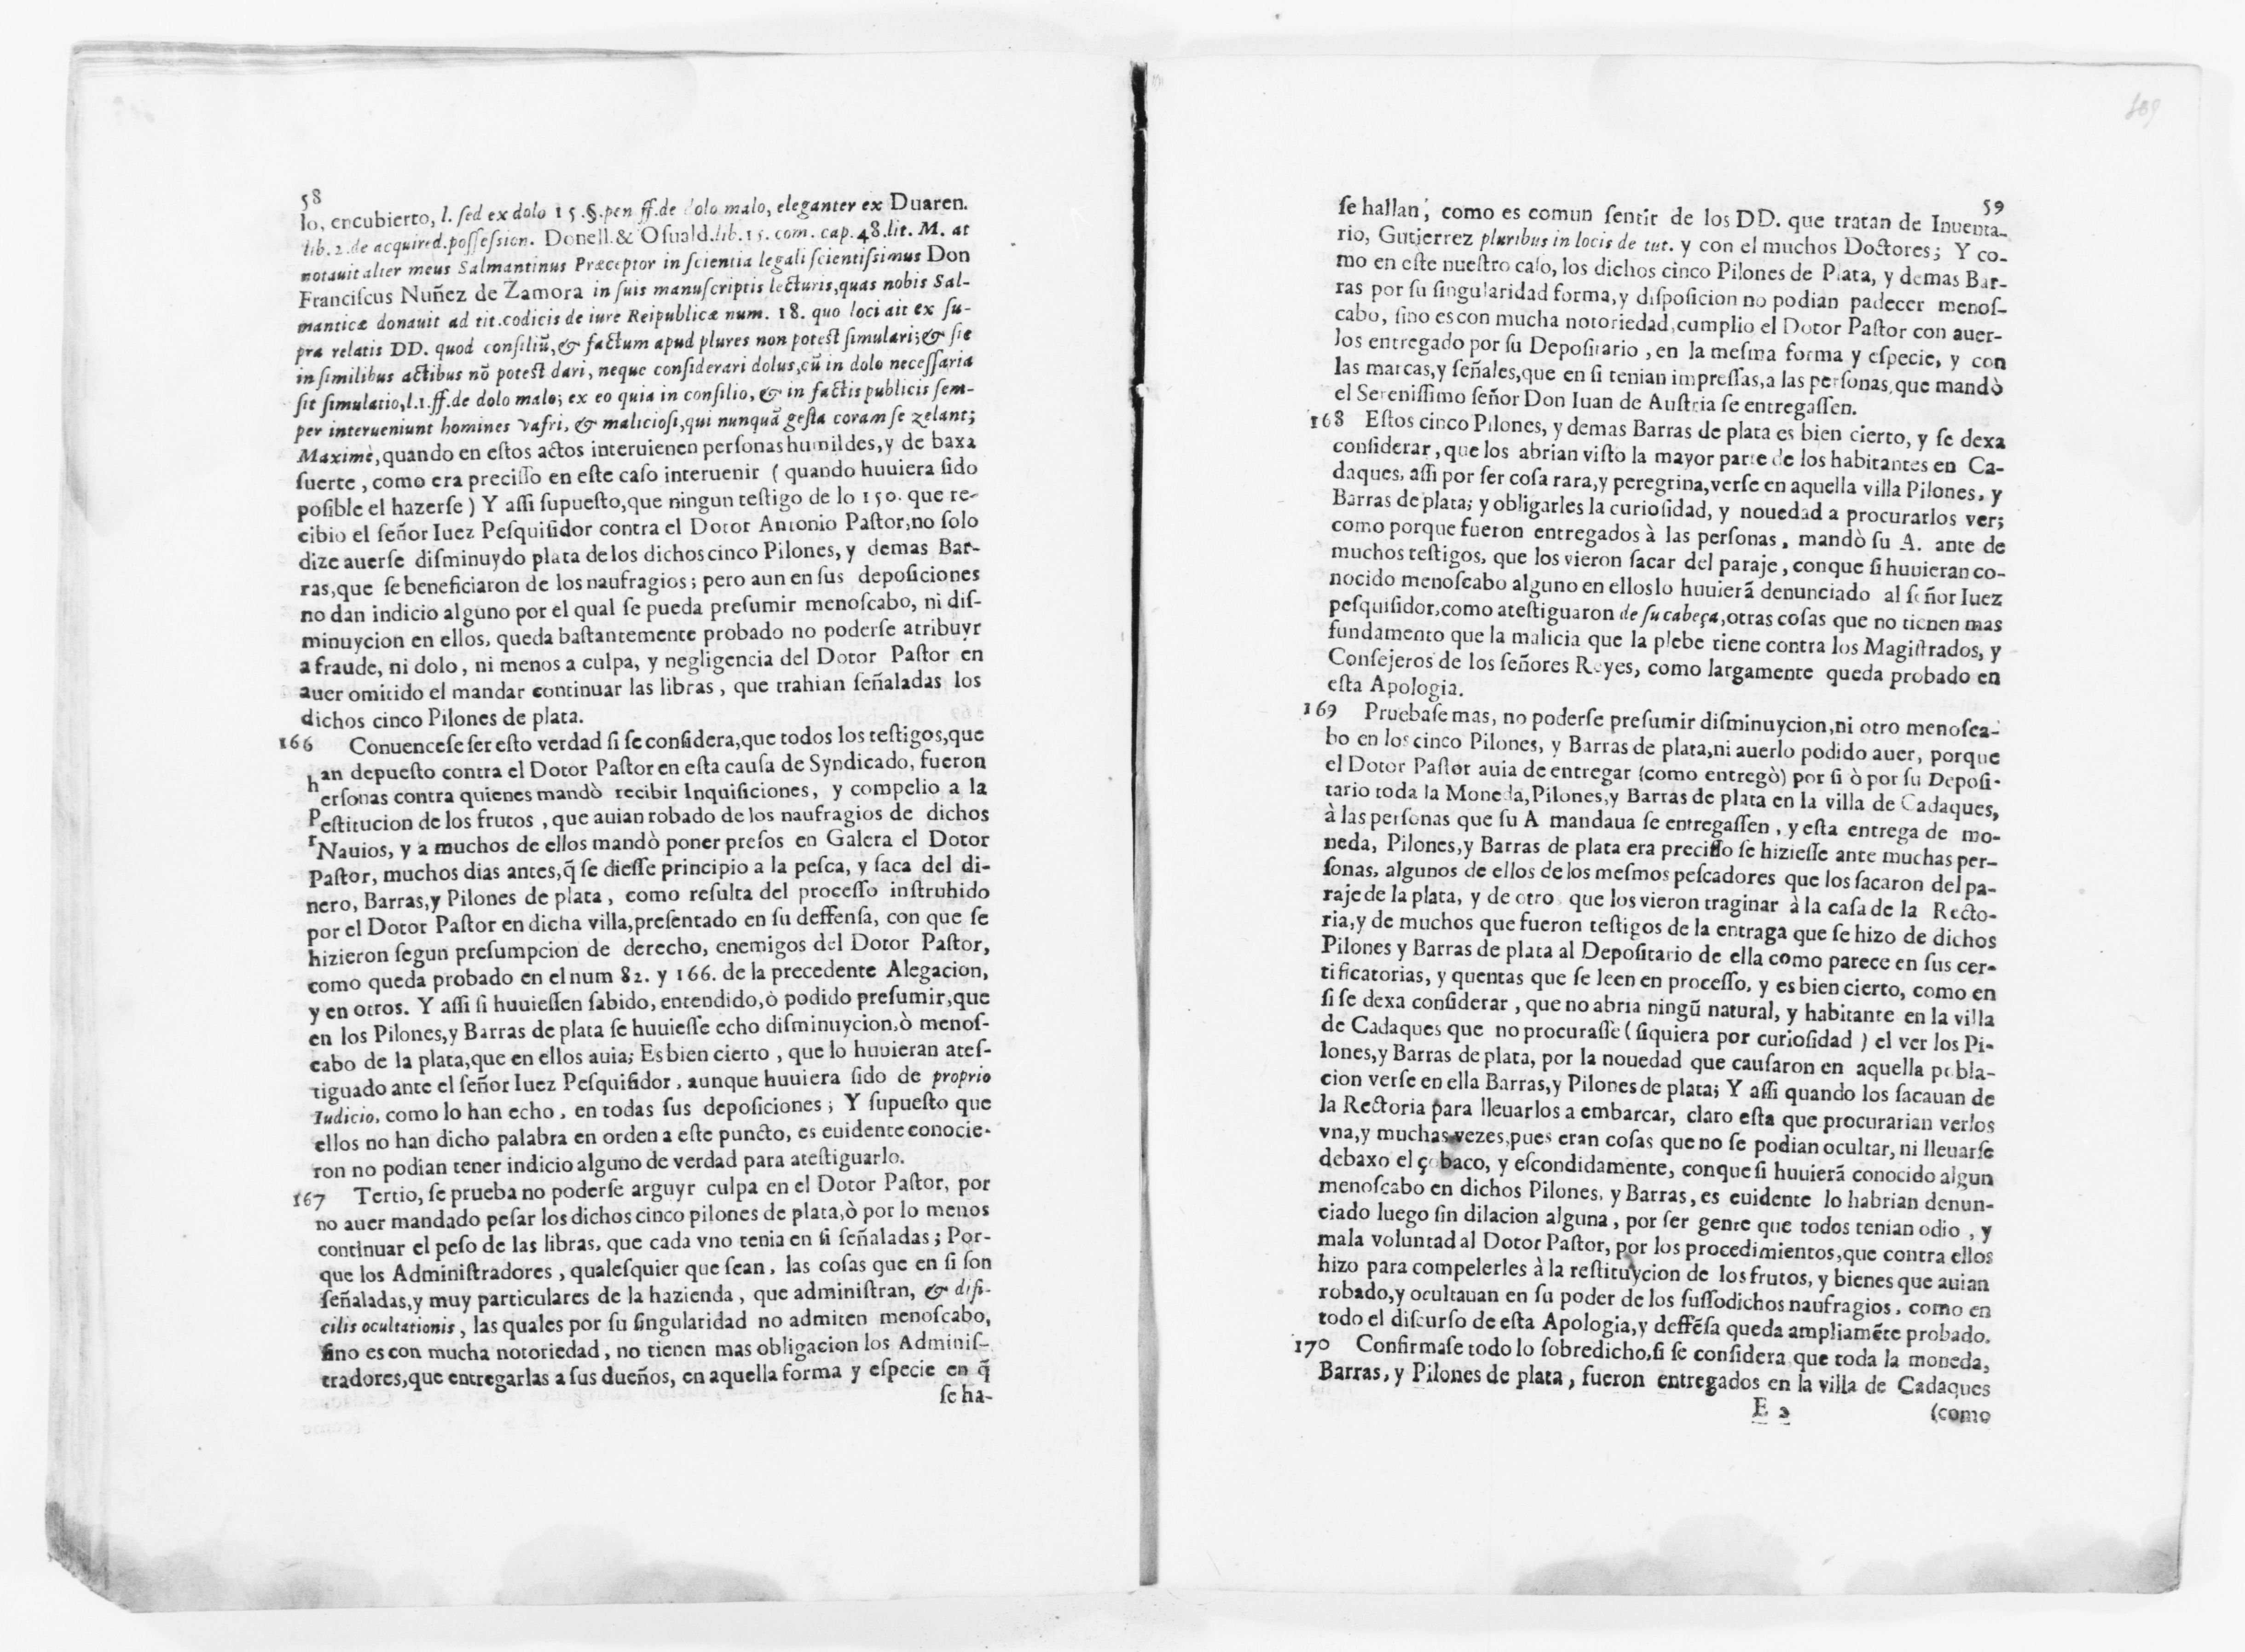 58
lo, encubierto, l. ſed ex dolo 15.§.pen ff.de dolo malo, eleganter ex Duaren.
lib.2.de acquired.poſſeſsion. Donell.& Oſuald.lib.15. com. cap.48.lit. M. at
notauit alter meus Salmantinus Præceptor in ſcientia legali ſcientiſsimus Don
Franciſcus Nuñez de Zamora in ſuis manuſcriptis lecturis,quas nobis Sal-
manticæ donauit ad tit.codicis de iure Reipublicæ num. 18. quo loci ait ex ſu-
pra relatis DD. quod conſiliũ,& factum apud plures non poteſt ſimulari;& ſic
in ſimilibus actibus nõ poteſt dari, neque conſiderari dolus,cũ in dolo neceſſaria
ſit ſimulatio,l.1.ff.de dolo malo; ex eo quia in conſilio, & in factis publicis ſem-
per interueniunt homines vafri, & malicioſi,qui nunquã geſta coram ſe zelant;
Maximè,quando en eſtos actos interuienen perſonas humildes,y de baxa
ſuerte, como era preciſſo en eſte caſo interuenir ( quando huuiera ſido
poſible el hazerſe ) Y aſſi ſupueſto,que ningun teſtigo de lo 150. que re-
cibio el ſeñor Iuez Peſquiſidor contra el Dotor Antonio Paſtor,no ſolo
dize auerſe diſminuydo plata de los dichos cinco Pilones, y demas Bar-
ras,que ſe beneficiaron de los naufragios; pero aun en ſus depoſiciones
no dan indicio alguno por el qual ſe pueda preſumir menoſcabo, ni diſ-
minuycion en ellos, queda baſtantemente probado no poderſe atribuyr
a fraude, ni dolo, ni menos a culpa, y negligencia del Dotor Paſtor en
auer omitido el mandar continuar las libras, que trahian ſeñaladas los
dichos cinco Pilones de plata.
166 Conuenceſe ſer eſto verdad ſi ſe conſidera,que todos los teſtigos,que
han depueſto contra el Dotor Paſtor en eſta cauſa de Syndicado, fueron
Perſonas contra quienes mandò recibir Inquiſiciones, y compelio a la
reſtitucion de los frutos, que auian robado de los naufragios de dichos
Nauios, y a muchos de ellos mandò poner preſos en Galera el Dotor
Paſtor, muchos dias antes,q̃ ſe dieſſe principio a la peſca, y ſaca del di-
nero, Barras,y Pilones de plata, como reſulta del proceſſo inſtruhido
por el Dotor Paſtor en dicha villa,preſentado en ſu deffenſa, con que ſe
hizieron ſegun preſumpcion de derecho, enemigos del Dotor Paſtor,
como queda probado en el num 82. y 166. de la precedente Alegacion,
y en otros. Y aſſi ſi huuieſſen ſabido, entendido,ò podido preſumir,que
en los Pilones,y Barras de plata ſe huuieſſe echo diſminuycion,ò menoſ-
cabo de la plata,que en ellos auia; Es bien cierto, que lo huuieran ateſ-
tiguado ante el ſeñor Iuez Peſquiſidor, aunque huuiera ſido de proprio
Iudicio, como lo han echo, en todas ſus depoſiciones; Y ſupueſto que
ellos no han dicho palabra en orden a eſte puncto, es euidente conocie-
ron no podian tener indicio alguno de verdad para ateſtiguarlo.
167 Tertio, ſe prueba no poderſe arguyr culpa en el Dotor Paſtor, por
no auer mandado peſar los dichos cinco pilones de plata,ò por lo menos
continuar el peſo de las libras, que cada vno tenia en ſi ſeñaladas; Por-
que los Adminiſtradores, qualeſquier que ſean, las coſas que en ſi ſon
ſeñaladas,y muy particulares de la hazienda, que adminiſtran, & difi-
cilis ocultationis, las quales por ſu ſingularidad no admiten menoſcabo,
ſino es con mucha notoriedad, no tienen mas obligacion los Adminiſ-
tradores,que entregarlas a ſus dueños, en aquella forma y eſpecie en q̃
ſe ha-
59
ſe hallan, como es comun ſentir de los DD. que tratan de Inuenta-
rio, Gutierrez pluribus in locis de tut. y con el muchos Doctores; Y co-
mo en eſte nueſtro caſo, los dichos cinco Pilones de Plata, y demas Bar-
ras por ſu ſingularidad forma,y diſpoſicion no podian padecer menoſ-
cabo, ſino es con mucha notoriedad,cumplio el Dotor Paſtor con auer-
los entregado por ſu Depoſitario, en la meſma forma y eſpecie, y con
las marcas,y ſeñales,que en ſi tenian impreſſas,a las perſonas,que mandò
el Sereniſſimo ſeñor Don Iuan de Auſtria ſe entregaſſen.
168 Eſtos cinco Pilones, y demas Barras de plata es bien cierto, y ſe dexa
conſiderar, que los abrian viſto la mayor parte de los habitantes en Ca-
daques, aſſi por ſer coſa rara,y peregrina,verſe en aquella villa Pilones, y
Barras de plata; y obligarles la curioſidad, y nouedad a procurarlos ver;
como porque fueron entregados à las perſonas, mandò ſu A. ante de
muchos teſtigos, que los vieron ſacar del paraje, conque ſi huuieran co-
nocido menoſcabo alguno en elloslo huuierã denunciado al ſeñor Iuez
peſquiſidor,como ateſtiguaron de ſu cabeça,otras coſas que no tienen mas
fundamento que la malicia que la plebe tiene contra los Magiſtrados, y
Conſejeros de los ſeñores Reyes, como largamente queda probado en
eſta Apologia.
169 Pruebaſe mas, no poderſe preſumir diſminuycion,ni otro menoſca-
bo en los cinco Pilones, y Barras de plata,ni auerlo podido auer, porque
el Dotor Paſtor auia de entregar (como entregò) por ſi ò por ſu Depoſi-
tario toda la Moneda,Pilones,y Barras de plata en la villa de Cadaques,
à las perſonas que ſu A mandaua ſe entregaſſen, y eſta entrega de mo-
neda, Pilones,y Barras de plata era preciſſo ſe hizieſſe ante muchas per-
ſonas, algunos de ellos de los meſmos peſcadores que los ſacaron del pa-
raje de la plata, y de otros que los vieron traginar à la caſa de la Recto-
ria,y de muchos que fueron teſtigos de la entraga que ſe hizo de dichos
Pilones y Barras de plata al Depoſitario de ella como parece en ſus cer-
tificatorias, y quentas que ſe leen en proceſſo, y es bien cierto, como en
ſi ſe dexa conſiderar, que no abria ningũ natural, y habitante en la villa
de Cadaques que no procuraſſe ( ſiquiera por curioſidad ) el ver los Pi-
lones,y Barras de plata, por la nouedad que cauſaron en aquella pobla-
cion verſe en ella Barras,y Pilones de plata; Y aſſi quando los ſacauan de
la Rectoria para lleuarlos a embarcar, claro eſta que procurarian verlos
vna,y muchas vezes,pues eran coſas que no ſe podian ocultar, ni lleuarſe
debaxo el çobaco, y eſcondidamente, conque ſi huuierã conocido algun
menoſcabo en dichos Pilones, y Barras, es euidente lo habrian denun-
ciado luego ſin dilacion alguna, por ſer gente que todos tenian odio, y
mala voluntad al Dotor Paſtor, por los procedimientos,que contra ellos
hizo para compelerles à la reſtituycion de los frutos, y bienes que auian
robado,y ocultauan en ſu poder de los ſuſſodichos naufragios, como en
todo el diſcurſo de eſta Apologia,y deffẽſa queda ampliamẽte probado.
170 Confirmaſe todo lo ſobredicho,ſi ſe conſidera que toda la moneda,
Barras, y Pilones de plata, fueron entregados en la villa de Cadaques
E 2 (como